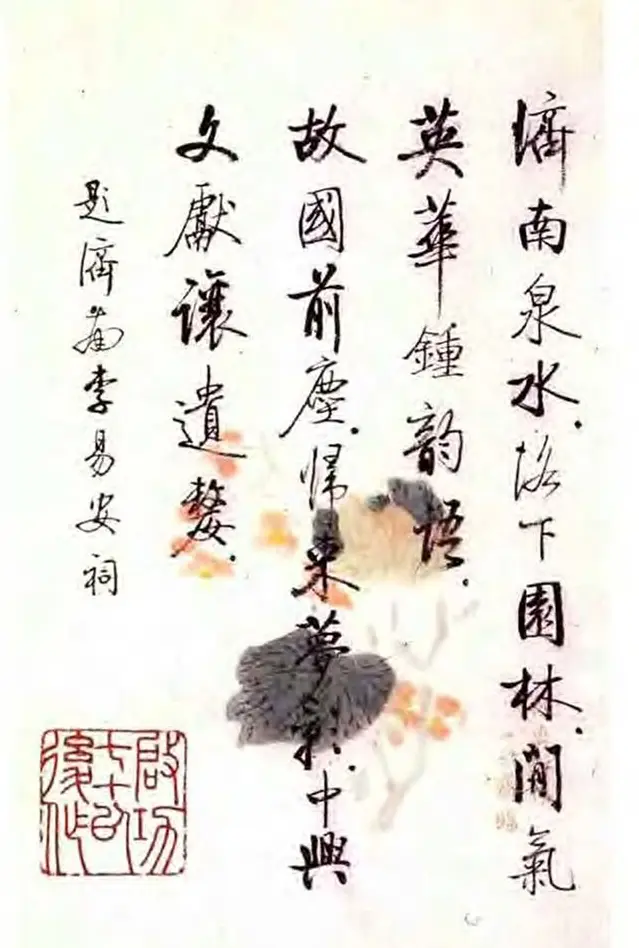 濟南泉水.洛下園林.閒氣
英華鍾韵語.
故國前塵.歸來夢影.中興
文獻讓遺嫠.
題濟南李易安祠
啟功
七十以
後作